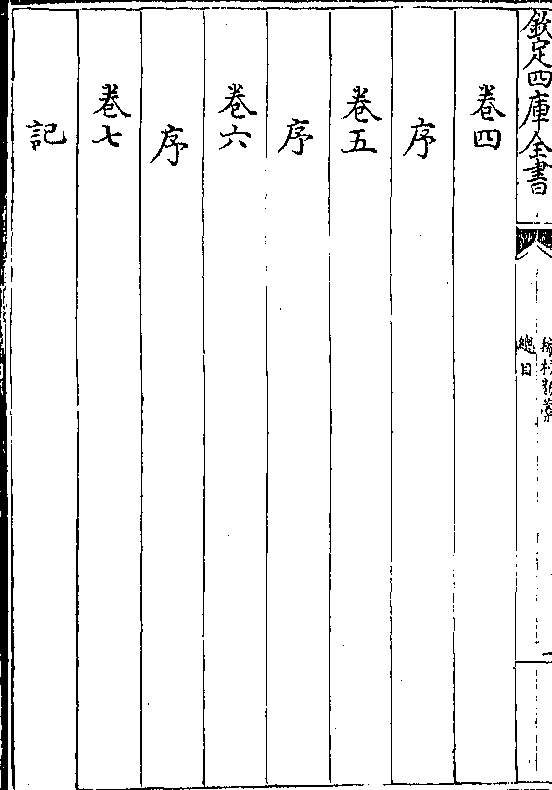 欽定四庫全書
總目
卷四
序
卷五
序
卷六
序
卷七
記